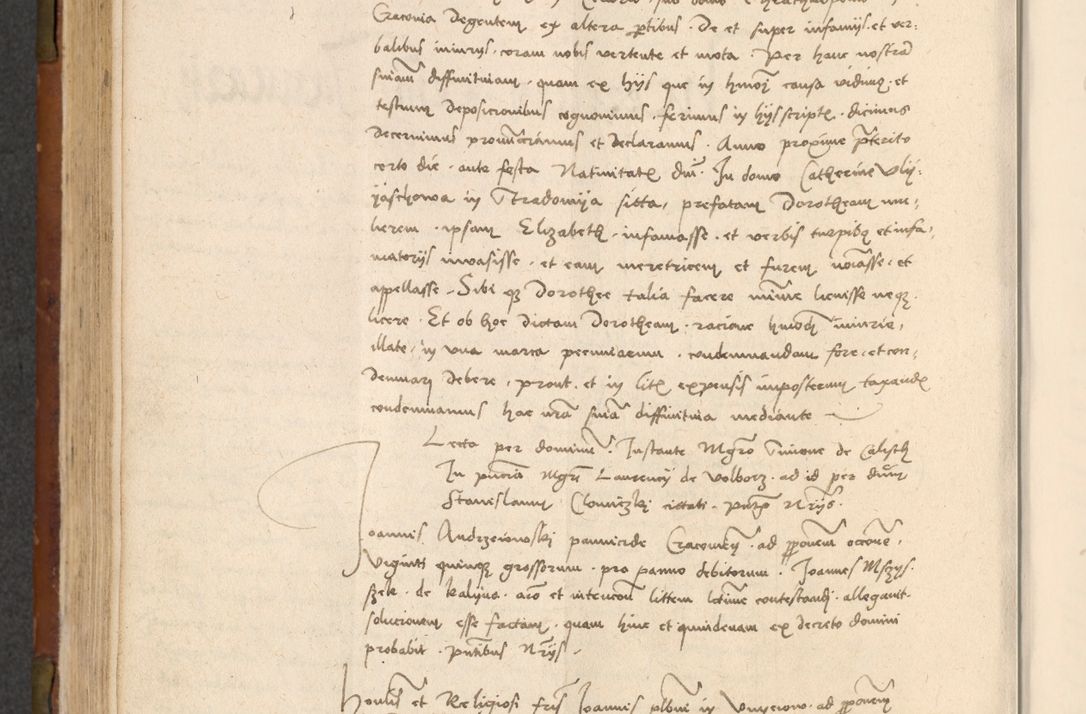 Cracovia degentem ex altera p̱tibus. De et super infamijs et ver-
balibus iniurijs. coram nobis vertente et mota. Per hanc nostrā
sniam̄ diffinitivam. quam ex hijs que in hmōi causa vidimꝰ. et
testium depositionibus cognovimus. ferimus in hijs scriptꝭ. dicimus
decernimus pronūctiamus et declaramus. Anno proxime p̄terito
certo die. ante festa Nativitatꝭ dnī. In domo Catherine Vlij-
jaschowa in Stradomija sitta, prefatam Dorotheam mu-
lierem. ipsam Elizabeth. infamasse. et verbis turpibꝰ et infa-
matorijs invasisse. et eam meretricem et furem noīasse. et
appellasse. Sibi qꝫ Dorothee talia facere minīe licuisse neqꝫ.
licere. Et ob hoc dictam Dorotheam. racione hmodi iniurie,
illate, in una marca pecuniarum. condemnandam fore. et con-
demnari debere, prout. et in litꝭ expensis imposterum taxandꝭ
condemnamus hac nrā sniā diffinitiva mediante
Lecta per dominū. Instante Mgrō Simone de Calisch
In pn̄cia Mgrī Laurencij de Volborz. ad id per dnūm
Stanislaum Clowiczki cittati. pn̄te Nrijs.
Joannis Andrzeiowski pannicide Cracoviēn. ad p̱ponem̄ occōne,
Viginti quinqꝫ grossorum. pro panno debitorum. Joannes Mszys-
szek. de Kalijna. aīo et intencōn littem lītīme contestandi. allegavit.
solucionem esse factam. quam hinc et quindenam ex decreto domini
probabit. pn̄tibus Nrijs.
Honlīs et Religiosi frīs Joannis plbnī in Vnijeiow. ad p̱ponem̄